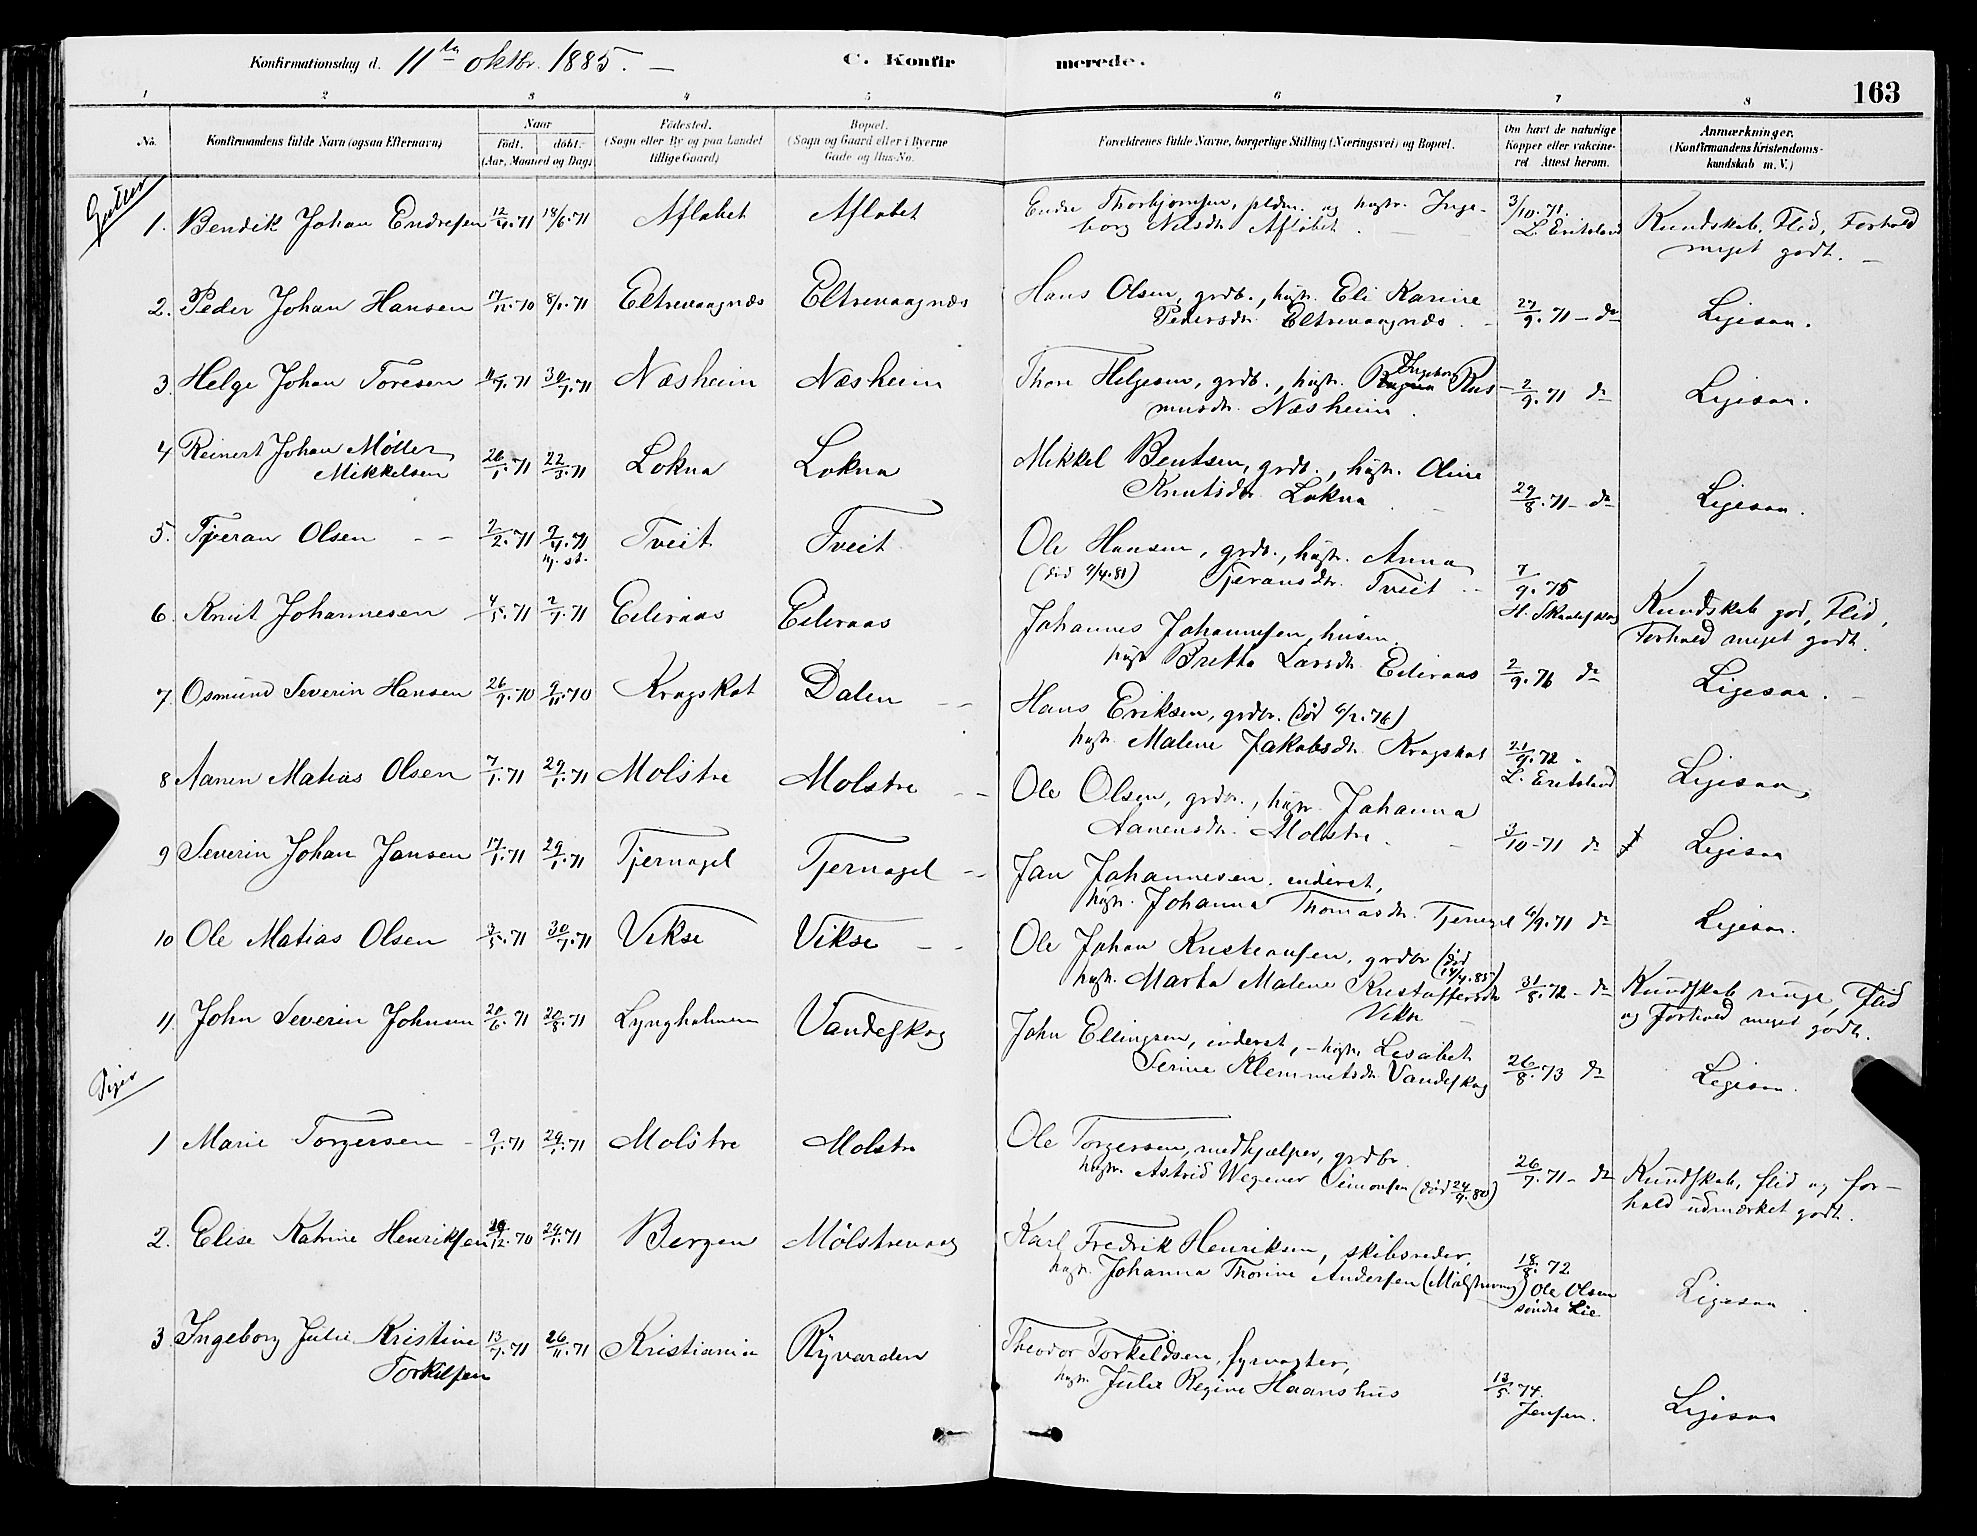 Konfirmationsdag d. 11te oktbr. 1885. — C. Konfirmerede. 163
1 2 3 4 5 6 7 8
No. Konfirmandens fulde Navn (ogsaa Efternavn) Naar født. døbt. (Aar, Maaned og Dag) Fødested. (Sogn eller By og paa Landet tillige Gaard) Bopæl. (Sogn og Gaard eller i Byerne Gade og Hus-No. Forældrenes fulde Navne, borgerlige Stilling (Næringsvei) og Bopæl. Om havt de naturlige Kopper eller vakcineret Attest herom. Anmærkninger. (Konfirmandens Kristendomskundskab m. V.)
Gutter
1. Bendik Johan Endresen 12/4.71 18/6.71 Afløbet Afløbet Endre Thorbjørnsen, hustr. Inge- 3/10.71. Kundskab, Flid, Forhold
borg Nilsdtr. Afløbet. L. Eritsland meget godt. —
2. Peder Johan Hansen 8/1.71 Eltrevaagnæs Eltrevaagnæs Hans Olsen, grdb., hustr. Eli Karine
Pedersdtr. Eltrevaagnæs. 27/9.71 – do Ligesaa.
3. Helge Johan Toresen 30/7.71 Næsheim Næsheim Thore Helgesen, grdb., hustr. Ingeborg Ras-
musdtr. Næsheim. 2/9.71 do Ligesaa.
4 Reinert Johan Møller
Mikkelsen 26/1.71 22/3.71 Lokna Lokna Mikkel Bentsen, grdb., hustr. Oline
Knutsdtr. Lokna. 29/8.71 – do Ligesaa.
5. Tjeran Olsen 2/2.71 9/4.71 Tveit Tveit Ole Hansen, grdb., hustr. Anna
hj. dt. (død 9/4.81) Tjeransdtr. Tveit 7/9.75
6. Knut Johannesen 4/5.71 2/7.71 Eileraas Eileraas Johannes Johannesen, husm. Kundskab god, Flid,
hustr. Bretta Larsdtr. Eileraas 2/9.76 do Forhold meget godt.
7. Osmund Severin Hansen 26/9.70 9/11.70 Kragskot Dalen Hans Eriksen, grdbr. (død 6/2.76) Ligesaa. —
hustr. Malene Jakobsdtr. Kragskot 21/9.72
L. Eritsland
8 Aanen Matias Olsen 7/1.71 29/1.71 Molstre Molstre Ole Olsen, grdbr., hustr. Johanna Ligesaa
Aanensdtr. Molstre. 3/10-71 do
9 Severin Johan Jansen 17/1.71 29/1.71 Tjernagel Tjernagel Jan Johannesen. inderst, Ligesaa
hustr. Johanna Thomasdtr. Tjernagel 6/9.71 do
10 Ole Matias Olsen 3/5.71 30/7.71 Vikse Vikse Ole Johan Kristensen, grdbr (død 14/4.85) Ligesaa.
hustr. Marta Malene Kristoffersdtr
Vikse 31/8.72 – do Kundskab ringe, Flid
og Forhold meget godt.
11 John Severin Johnsen 20/6.71 20/8.71 Lyngholmen Vandeskog John Ellingsen, inderst, – hustr. Lisabet
Serine Klemmetsdtr. Vandeskog 26/8.73 do Ligesaa.
Piger
1 Marie Torgersen 9/1.71 29/1.71 Molstre Molstre Ole Torgersen, medhjælper, grdbr.
hustr. Astrid Wegener Simonsen (død 24/9.80) 26/7.71 – do Kundskab, flid og for-
hold udmærket godt.
2. Elise Katrine Henriksen 29/1.71 Bergen Mølstrevaag Karl Fredrik Henriksen, skibsreder,
hustr. Johanna Thorine Andersen (Mølstrevaag) 18/8.72
Ole Olsen
søndre Lie Ligesaa.
3 Ingeborg Julie Kristine
Torkilsen 13/7.71 26/11.71 Kristiania Ryvarden Theodor Torkildsen, fyrvogter,
hustr. Julie Regine Haanshus 13/5.74.
Jensen. Ligesaa